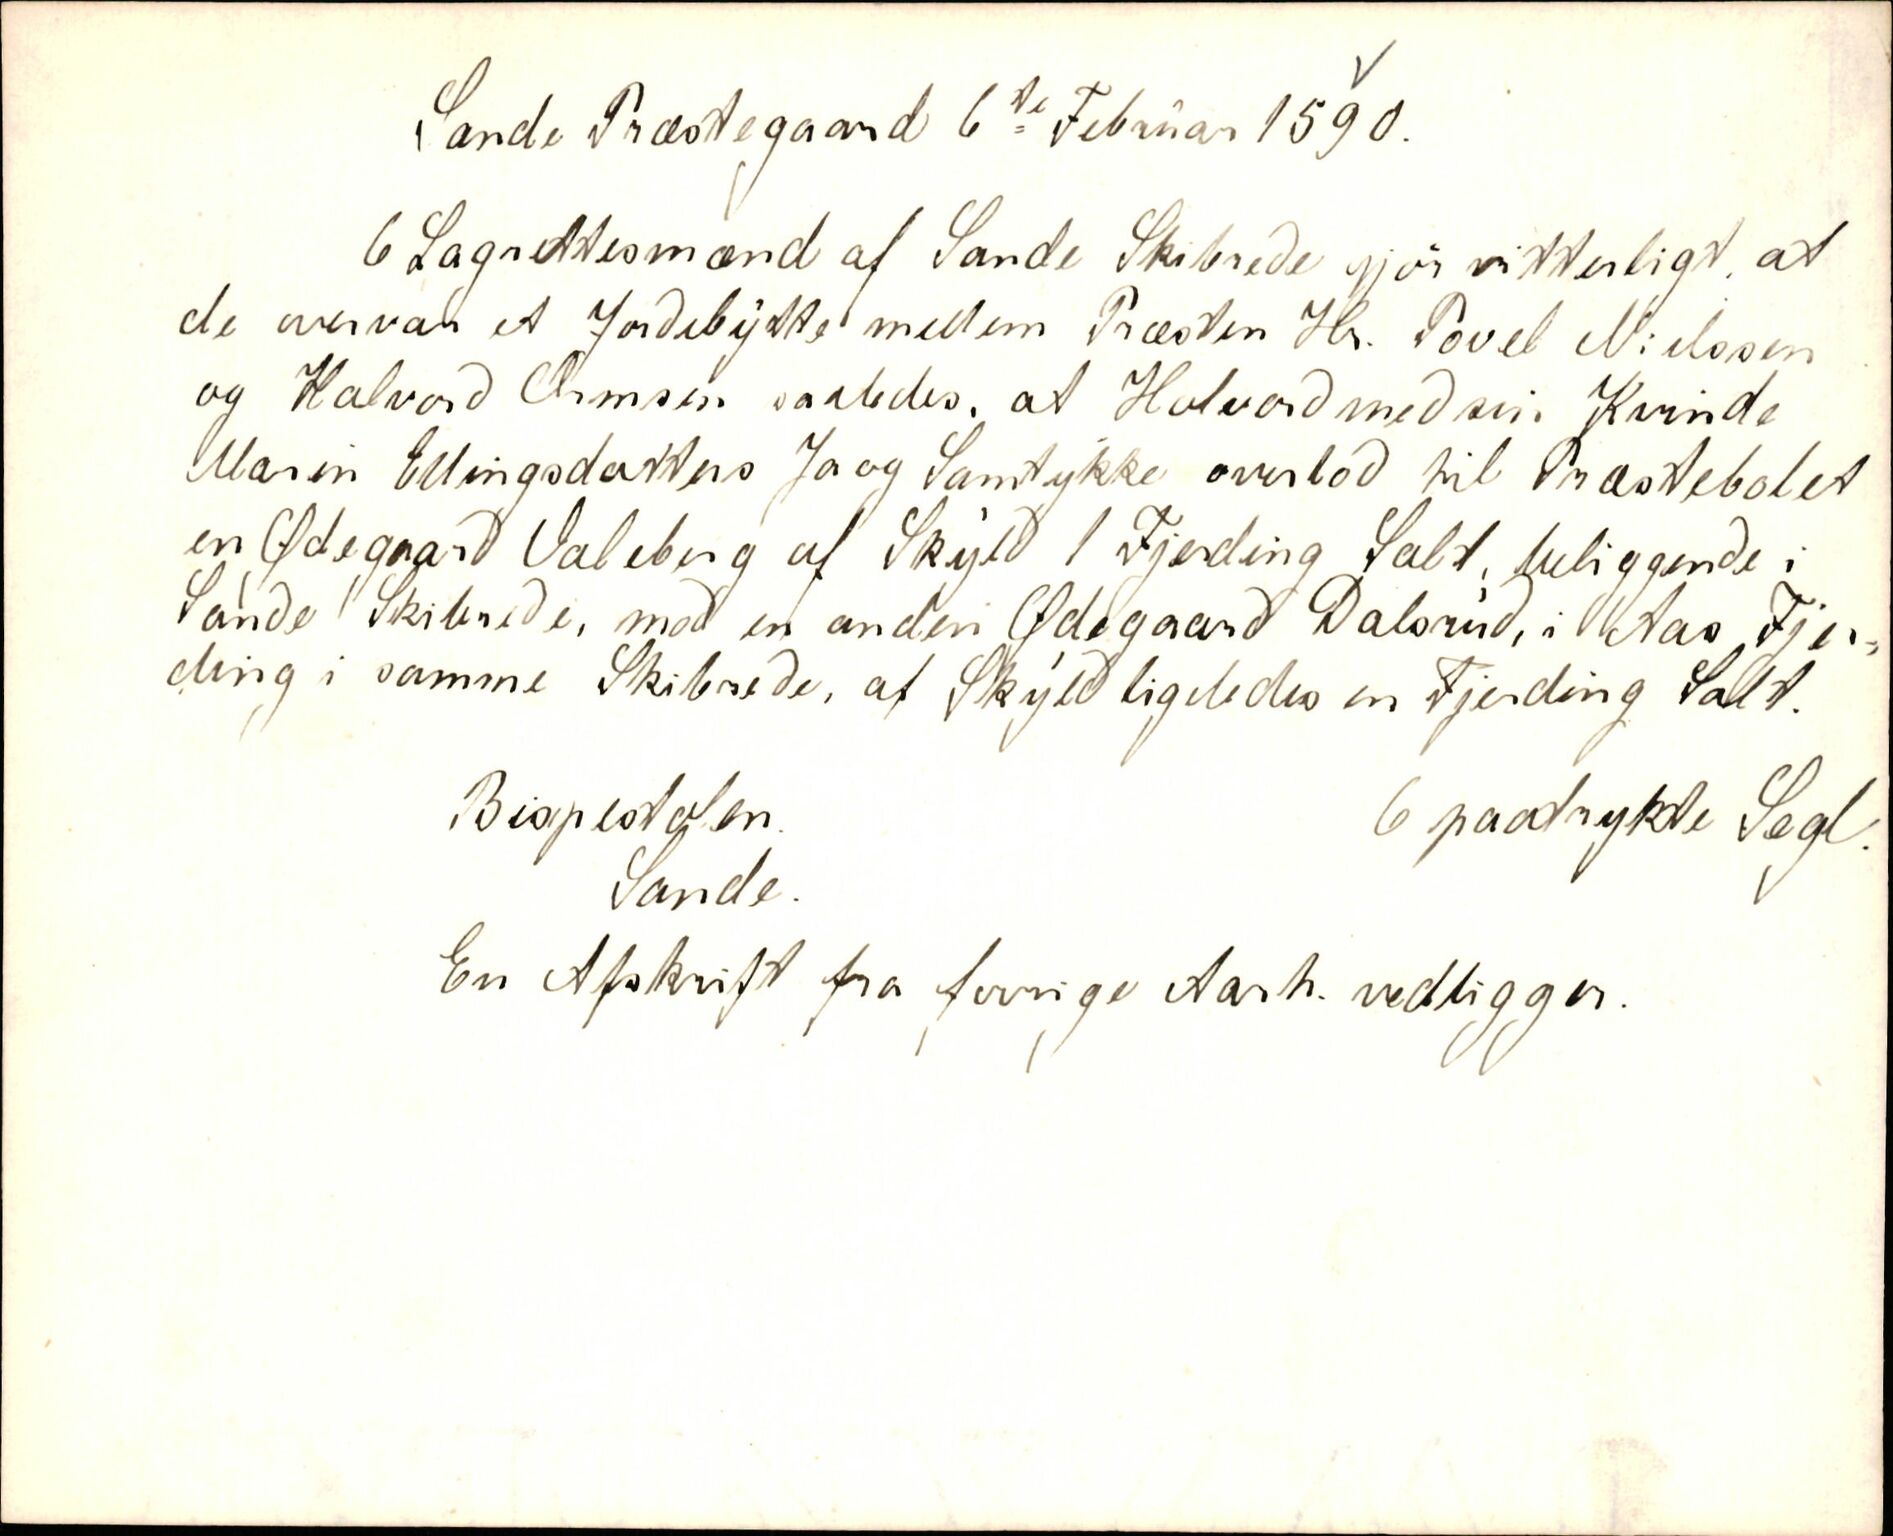 Sande Præstegaard 6te Februar 1590.
6 Lagrettesmænd af Sande Skibrede gjör vitterligt, at
de overvar et Jordebytte mellem Præsten Hr. Povel Nielssen
og Halvord Ormsen saaledes, at Halvord med sin Kvinde
Marin Ellingsdatters Ja og Samtykke overlod til Præstebolet
en Ødegaard Valeberg af Skyld 1 Fjerding Salt, beliggende i
Sande Skibrede, mod en anden Ødegaard Dalsrud, i Aas Fjer-
ding i samme Skibrede, af Skyld ligeledes en Fjerding Salt.
Bispestolen. 6 paatrykte Segl.
Sande.
En Afskrift fra forrige Aarh. vedligger.